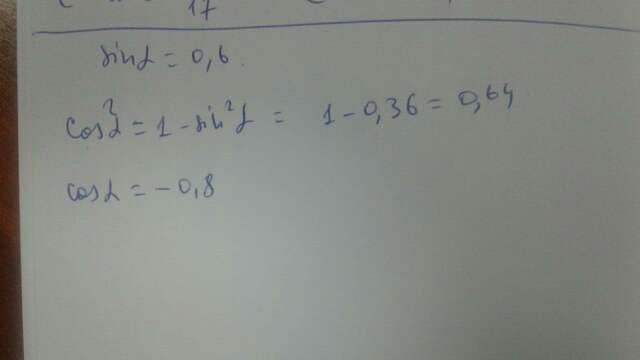 17
sinα = 0,6.
cos²α = 1 - sin²α = 1 - 0,36 = 0,64
cosα = -0,8